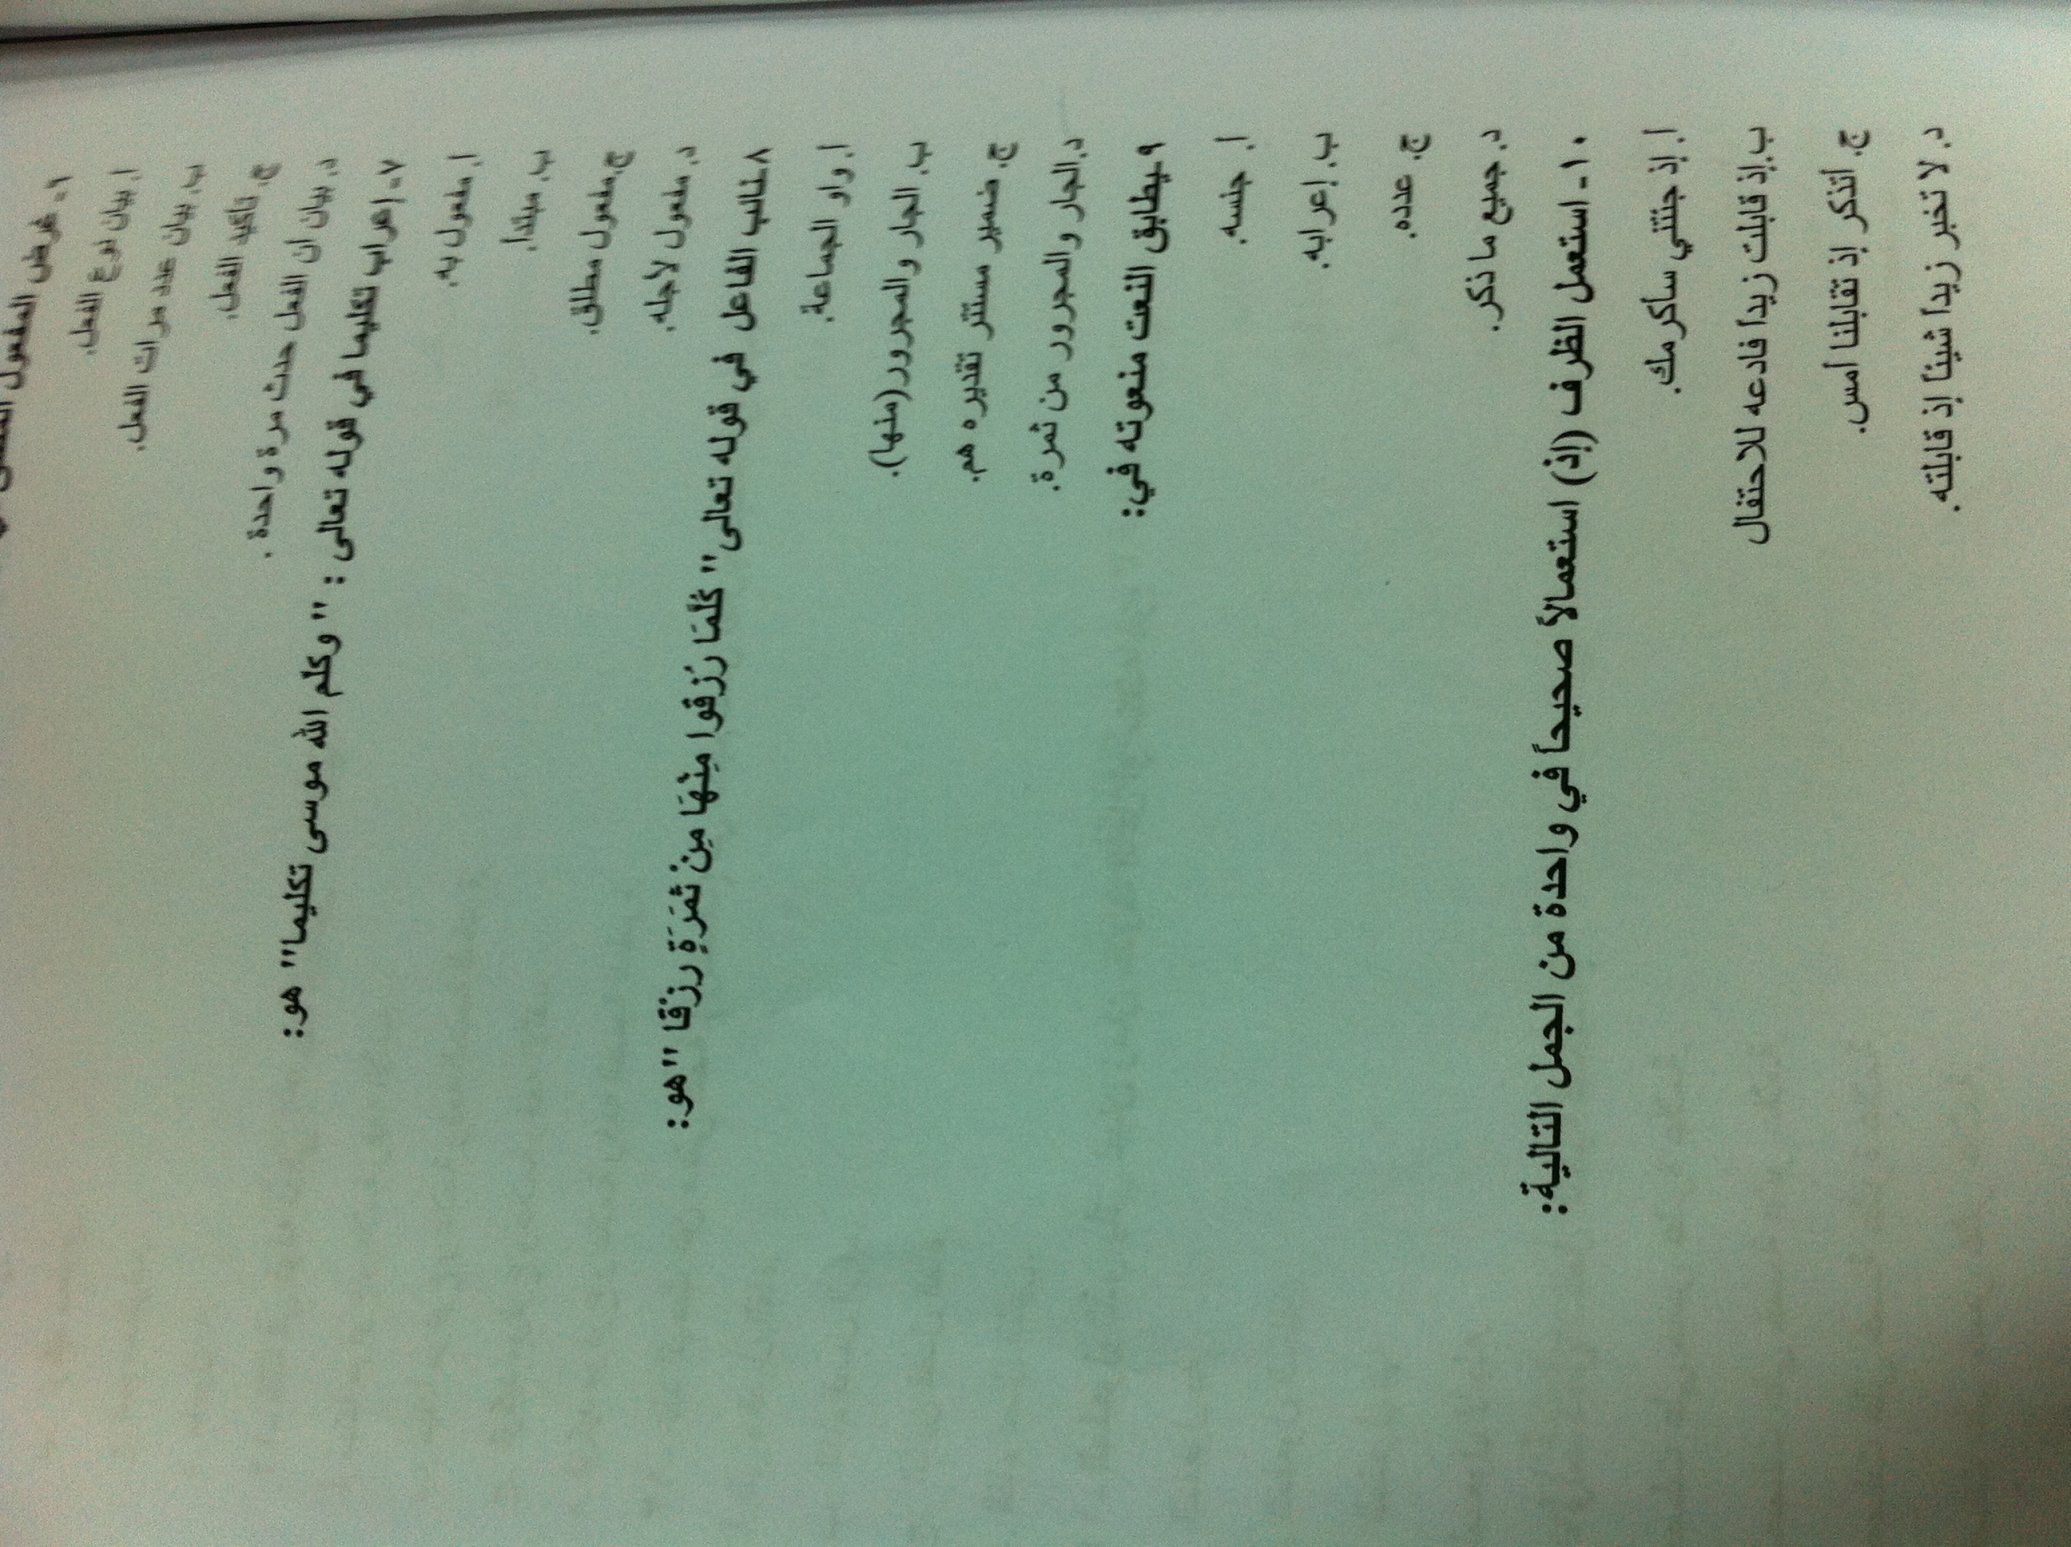 ٦- غرض المفعول المطلق
ا. بيان نوع الفعل.
ب. بيان عدد مرات الفعل.
ج. تأكيد الفعل.
د. بيان ان الفعل حدث مرة واحدة .
٧- إعراب تكليما في قوله تعالى : " وكلم الله موسى تكليما" هو:
ا. مفعول به.
ب. مبتدا.
ج. مفعول مطلق.
د. مفعول لأجله.
٨ـ نائب الفاعل في قوله تعالى" كُلَّمَا رُزِقُوا مِنْهَا مِنْ ثَمَرَةٍ رِزْقًا "هو:
ا. واو الجماعة.
ب. الجار والمجرور(منها).
ج. ضمير مستتر تقديره هم.
د. الجار والمجرور من ثمرة.
٩ـ يطابق النعت منعوته في:
أ. جنسه.
ب. إعرابه.
ج. عدده.
د. جميع ما ذكر.
١٠- استعمل الظرف (إذ) استعمالاً صحيحاً في واحدة من الجمل التالية:
أ. إذ جئتني سأكرمك.
ب. إذ قابلت زيداً فادعه للاحتفال
ج. أتذكر إذ تقابلنا أمس.
د. لا تخبر زيداً شيئاً إذ قابلته.